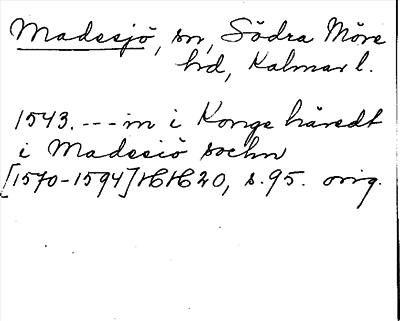 Madesjö, sn, Södra Möre
hd, Kalmar l.
1543. --- m i Konge häredt
i Madesiö sochn
[1570-1594] HH 20, s. 95. orig.